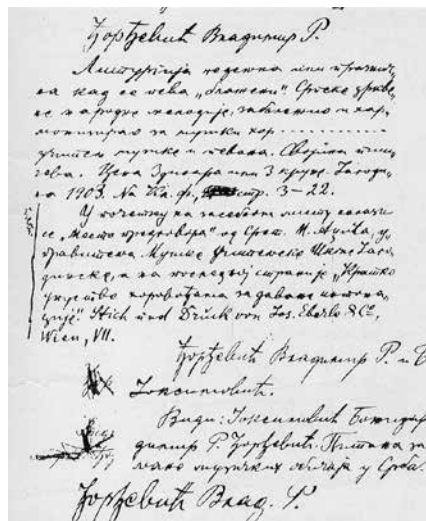 Ђорђевић Владимир Р.
Литургија недељна или празнич-
на кад се пева „блажени“. Српске цркве-
не народне мелодије, забележио и хар-
монизирао за мушки хор
учитељ музике и певања. Својина пиш-
чева. Цена 3 динара или 3 круне. Јагоди-
на 1903. На вел. ф., стр. 3–22.
У почетку на засебном листу налази
се „Место предговора“ од Срет. М. Аџића, у-
правитеља Мушке Учитељске Школе Јаго-
динске, а на последњој страни је „Кратко
упуство хоровођама за давање интона-
ције“. Stich und Druck von Jos. Eberle & Co.,
Wien, VII.
Ђорђевић Владимир Р. и Б
Јоксимовић.
Види: Јоксимовић Божидар
димир Р. Ђорђевић. Питања за
музичких обичаја у Срба.
Ђорђевић Влад. Р.